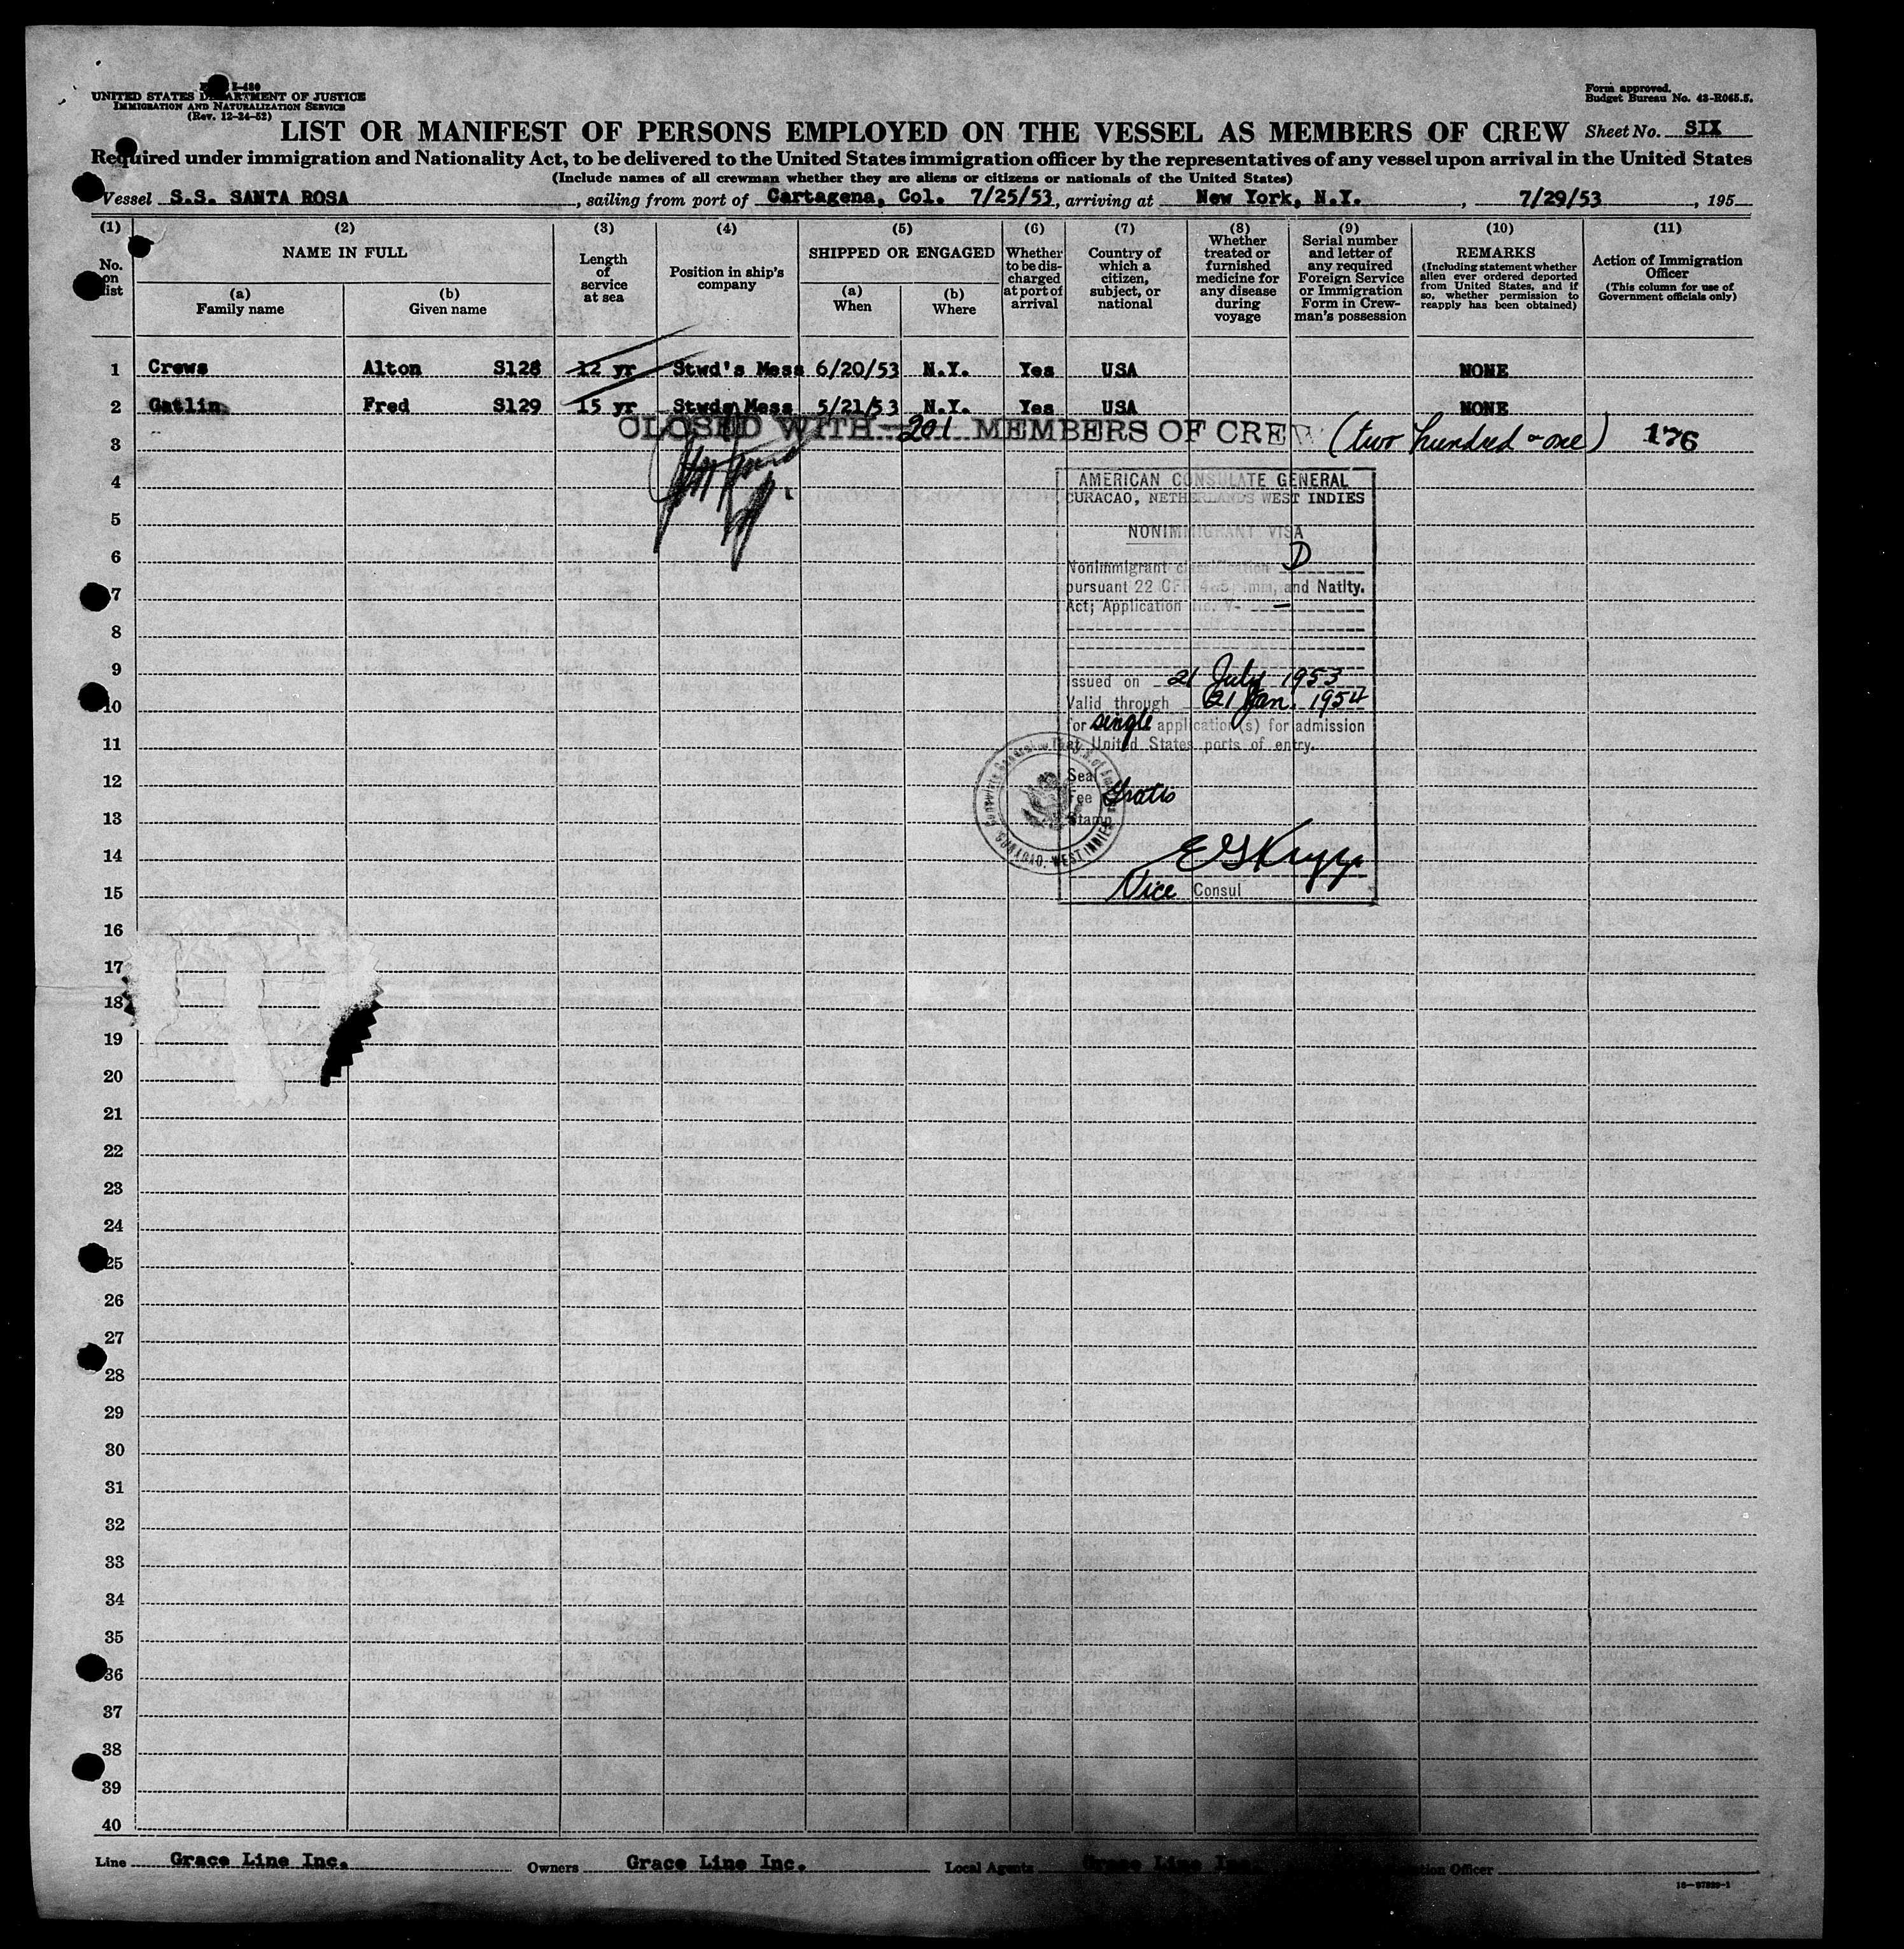 Form I-480
UNITED STATES DEPARTMENT OF JUSTICE
IMMIGRATION AND NATURALIZATION SERVICE
(Rev. 12-24-52)
Form approved.
Budget Bureau No. 43-R065.5.
LIST OR MANIFEST OF PERSONS EMPLOYED ON THE VESSEL AS MEMBERS OF CREW Sheet No. SIX
Required under immigration and Nationality Act, to be delivered to the United States immigration officer by the representatives of any vessel upon arrival in the United States
(Include names of all crewman whether they are aliens or citizens or nationals of the United States)
Vessel S.S. SANTA ROSA, sailing from port of Cartagena, Col. 7/25/53, arriving at New York, N.Y., 7/29/53, 195
(1) (2) (3) (4) (5) (6) (7) (8) (9) (10) (11)
No. on list
NAME IN FULL
(a) Family name
(b) Given name
Length of service at sea
Position in ship's company
SHIPPED OR ENGAGED
(a) When
(b) Where
Whether to be discharged at port of arrival
Country of which a citizen, subject, or national
Whether treated or furnished medicine for any disease during voyage
Serial number and letter of any required Foreign Service or Immigration Form in Crewman's possession
REMARKS
(Including statement whether alien ever ordered deported from United States, and if so, whether permission to reapply has been obtained)
Action of Immigration Officer
(This column for use of Government officials only)
1 Crews Alton S128 12 yr Stwd's Mess 6/20/53 N.Y. Yes USA NONE
2 Gatlin Fred S129 15 yr Stwds Mess 5/21/53 N.Y. Yes USA NONE
CLOSED WITH 201 MEMBERS OF CREW (two hundred - one) 176
3
4
5
6
7
8
9
10
11
12
13
14
15
16
17
18
19
20
21
22
23
24
25
26
27
28
29
30
31
32
33
34
35
36
37
38
39
40
AMERICAN CONSULATE GENERAL
CURACAO, NETHERLANDS WEST INDIES
NONIMMIGRANT VISA
Nonimmigrant classification D
pursuant 22 CFR Imm, and Natlty.
Act; Application No. V- —
Issued on 21 July 1953
Valid through 21 Jan. 1954
for single application(s) for admission
United States ports of entry.
Seal
Fee Gratis
Stamp
Vice Consul
CURACAO, WEST INDIES
Line Grace Line Inc. Owners Grace Line Inc. Local Agents Grace Line Inc. Officer
16—67829-1